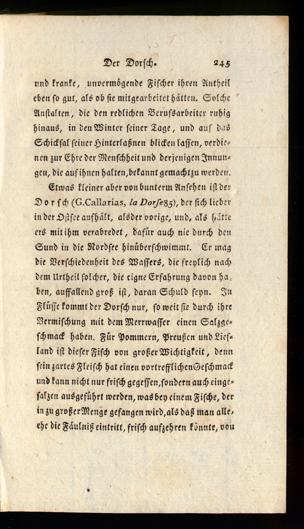 Der Dorsch. 245
und kranke, unvermögende Fischer ihren Antheil
eben so gut, als ob sie mitgearbeitet hätten. Solche
Anstalten, die den redlichen Berufsarbeiter ruhig
hinaus, in den Winter seiner Tage, und auf das
Schicksal seiner Hinterlaßnen blicken lassen, verdie-
nen zur Ehre der Menschheit und derjenigen Innun-
gen, die auf ihnen halten, bekannt gemacht zu werden.
Etwas kleiner aber von bunterm Ansehen ist der
Dorsch (G. Callarias, la Dorse 85), der sich lieber
in der Ostsee aufhält, als der vorige, und, als hätte
ers mit ihm verabredet, dafür auch nie durch den
Sund in die Nordsee hinüberschwimmt. Er mag
die Verschiedenheit des Wassers, die freylich nach
dem Urtheil solcher, die eigne Erfahrung davon ha-
ben, auffallend groß ist, daran Schuld seyn. In
Flüsse kommt der Dorsch nur, so weit sie durch ihre
Vermischung mit dem Meerwasser einen Salzge-
schmack haben. Für Pommern, Preußen und Lief-
land ist dieser Fisch von großer Wichtigkeit, denn
sein zartes Fleisch hat einen vortrefflichen Geschmack
und kann nicht nur frisch gegessen, sondern auch einge-
salzen ausgeführt werden, was bey einem Fische, der
in zu großer Menge gefangen wird, als daß man alle,
ehe die Fäulniß eintritt, frisch aufzehren könnte, von